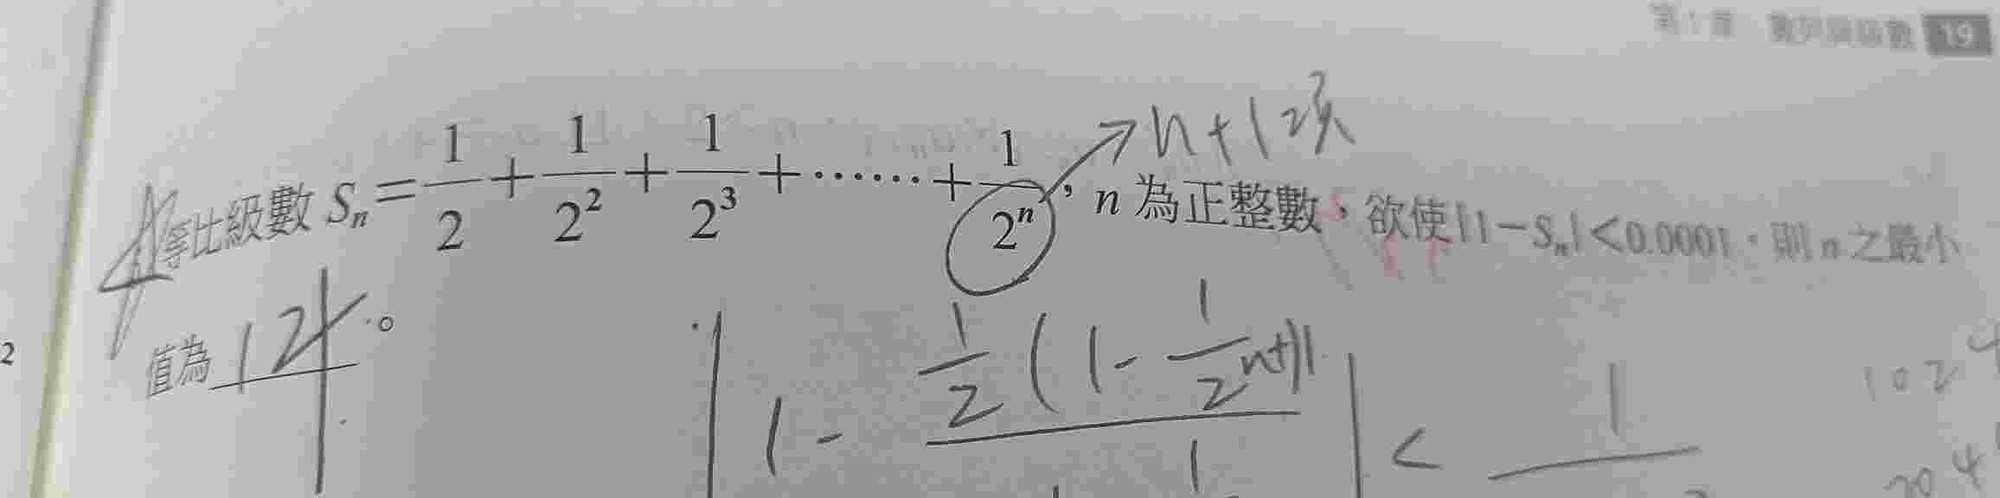 第1章 數列與級數 19
→ n+1項
等比級數 Sₙ = 1/2 + 1/2² + 1/2³ + ⋯⋯ + 1/2ⁿ，n 為正整數，欲使|1−Sₙ|<0.0001，則 n 之最小
值為 12 。
2
| 1 - (1/2 (1 - 1/2ⁿ⁺¹)) / | < 1/
1024
204